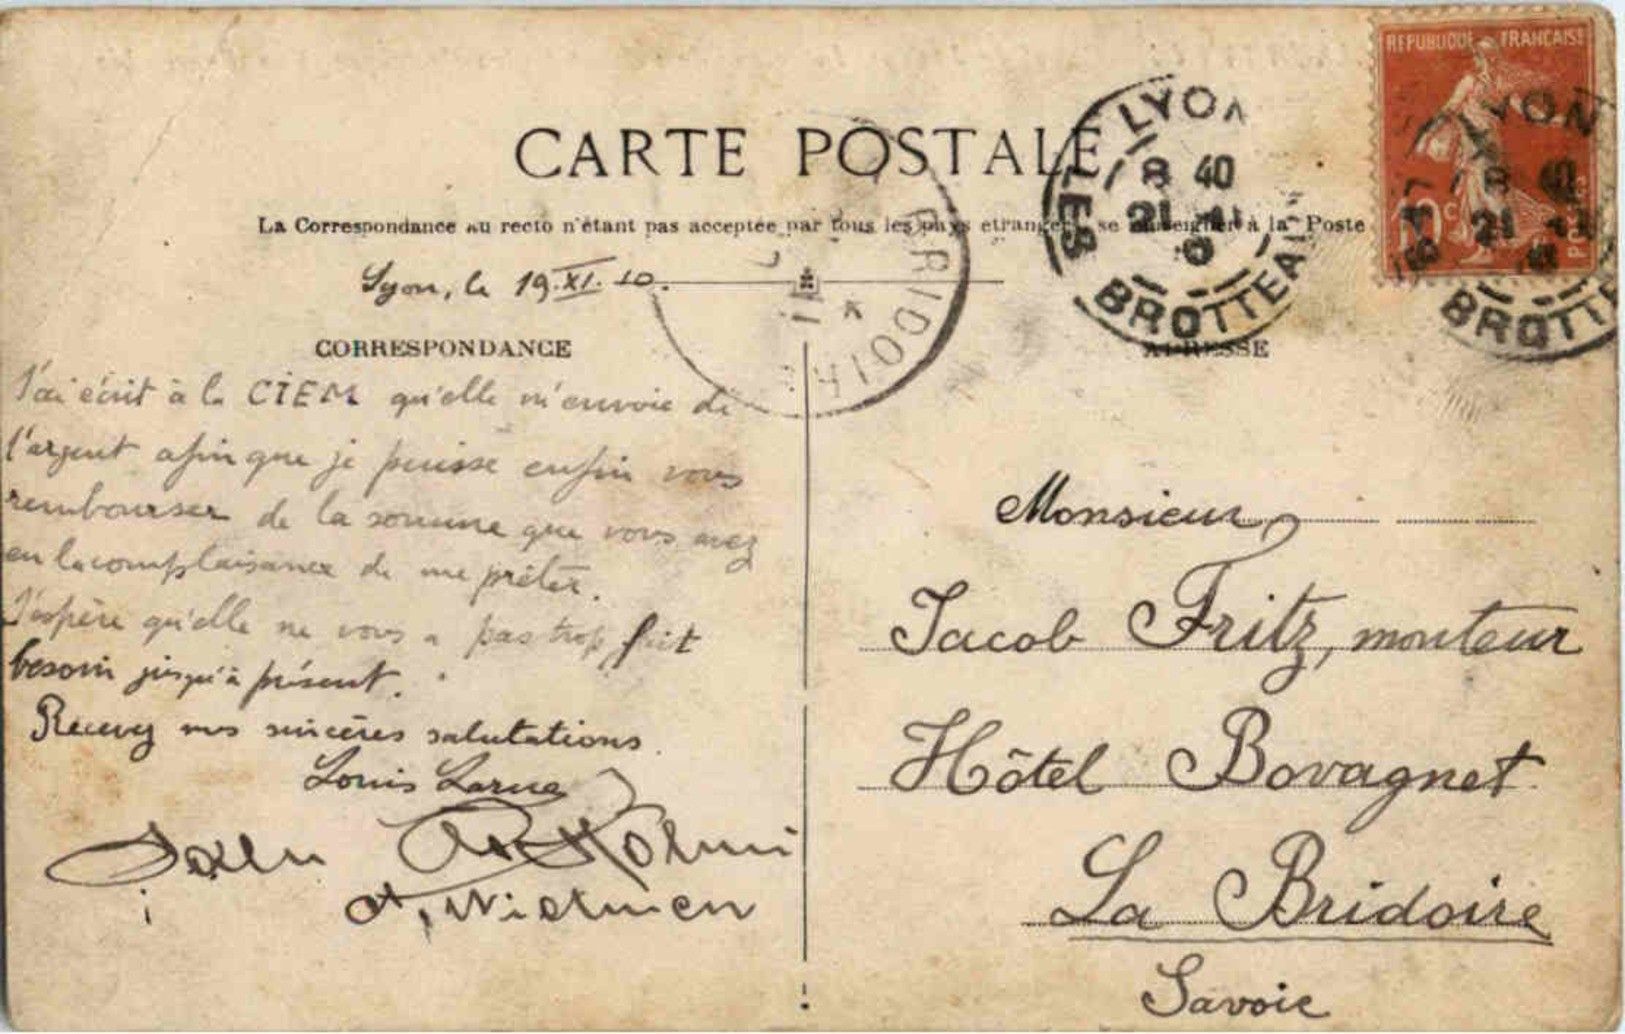 CARTE POSTALE
La Correspondance au recto n'étant pas acceptée par tous les pays etrangers, se renseigner à la Poste
REPUBLIQUE FRANÇAISE
10c
POSTES
LYON
8 40
21 11
BROTTEAUX
LYON
21 11
BROTTE
BRIDOIRE
Lyon, le 19.XI.10.
CORRESPONDANCE
J'ai écrit à la CIEM qu'elle m'envoie de
l'argent afin que je puisse enfin vous
rembourser de la somme que vous avez
eu la complaisance de me prêter.
J'espère qu'elle ne vous a pas trop fait
besoin jusqu'à présent.
Recevez mes sincères salutations.
Louis Larue
ADRESSE
Monsieur
Jacob Fritz, monteur
Hôtel Bovagnet
La Bridoire
Savoie